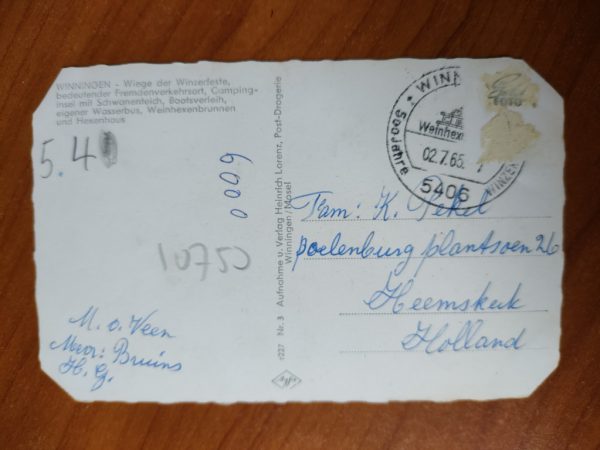 WINNINGEN - Wiege der Winzerfeste,
bedeutender Fremdenverkehrsort, Camping-
insel mit Schwanenteich, Bootsverleih,
eigener Wasserbus, Weinhexenbrunnen
und Hexenhaus
5.4
0009
10750
M. v. Veen
Mevr: Bruins
H. G.
1227 Nr. 3 Aufnahme u. Verlag Heinrich Lorenz, Post-Drogerie
Winningen/Mosel
WINN
500 Jahre
Weinhex
02.7.65
5406
WINZER
Fam: K. Pekel
poelenburg plantsoen 26
Heemskerk
Holland